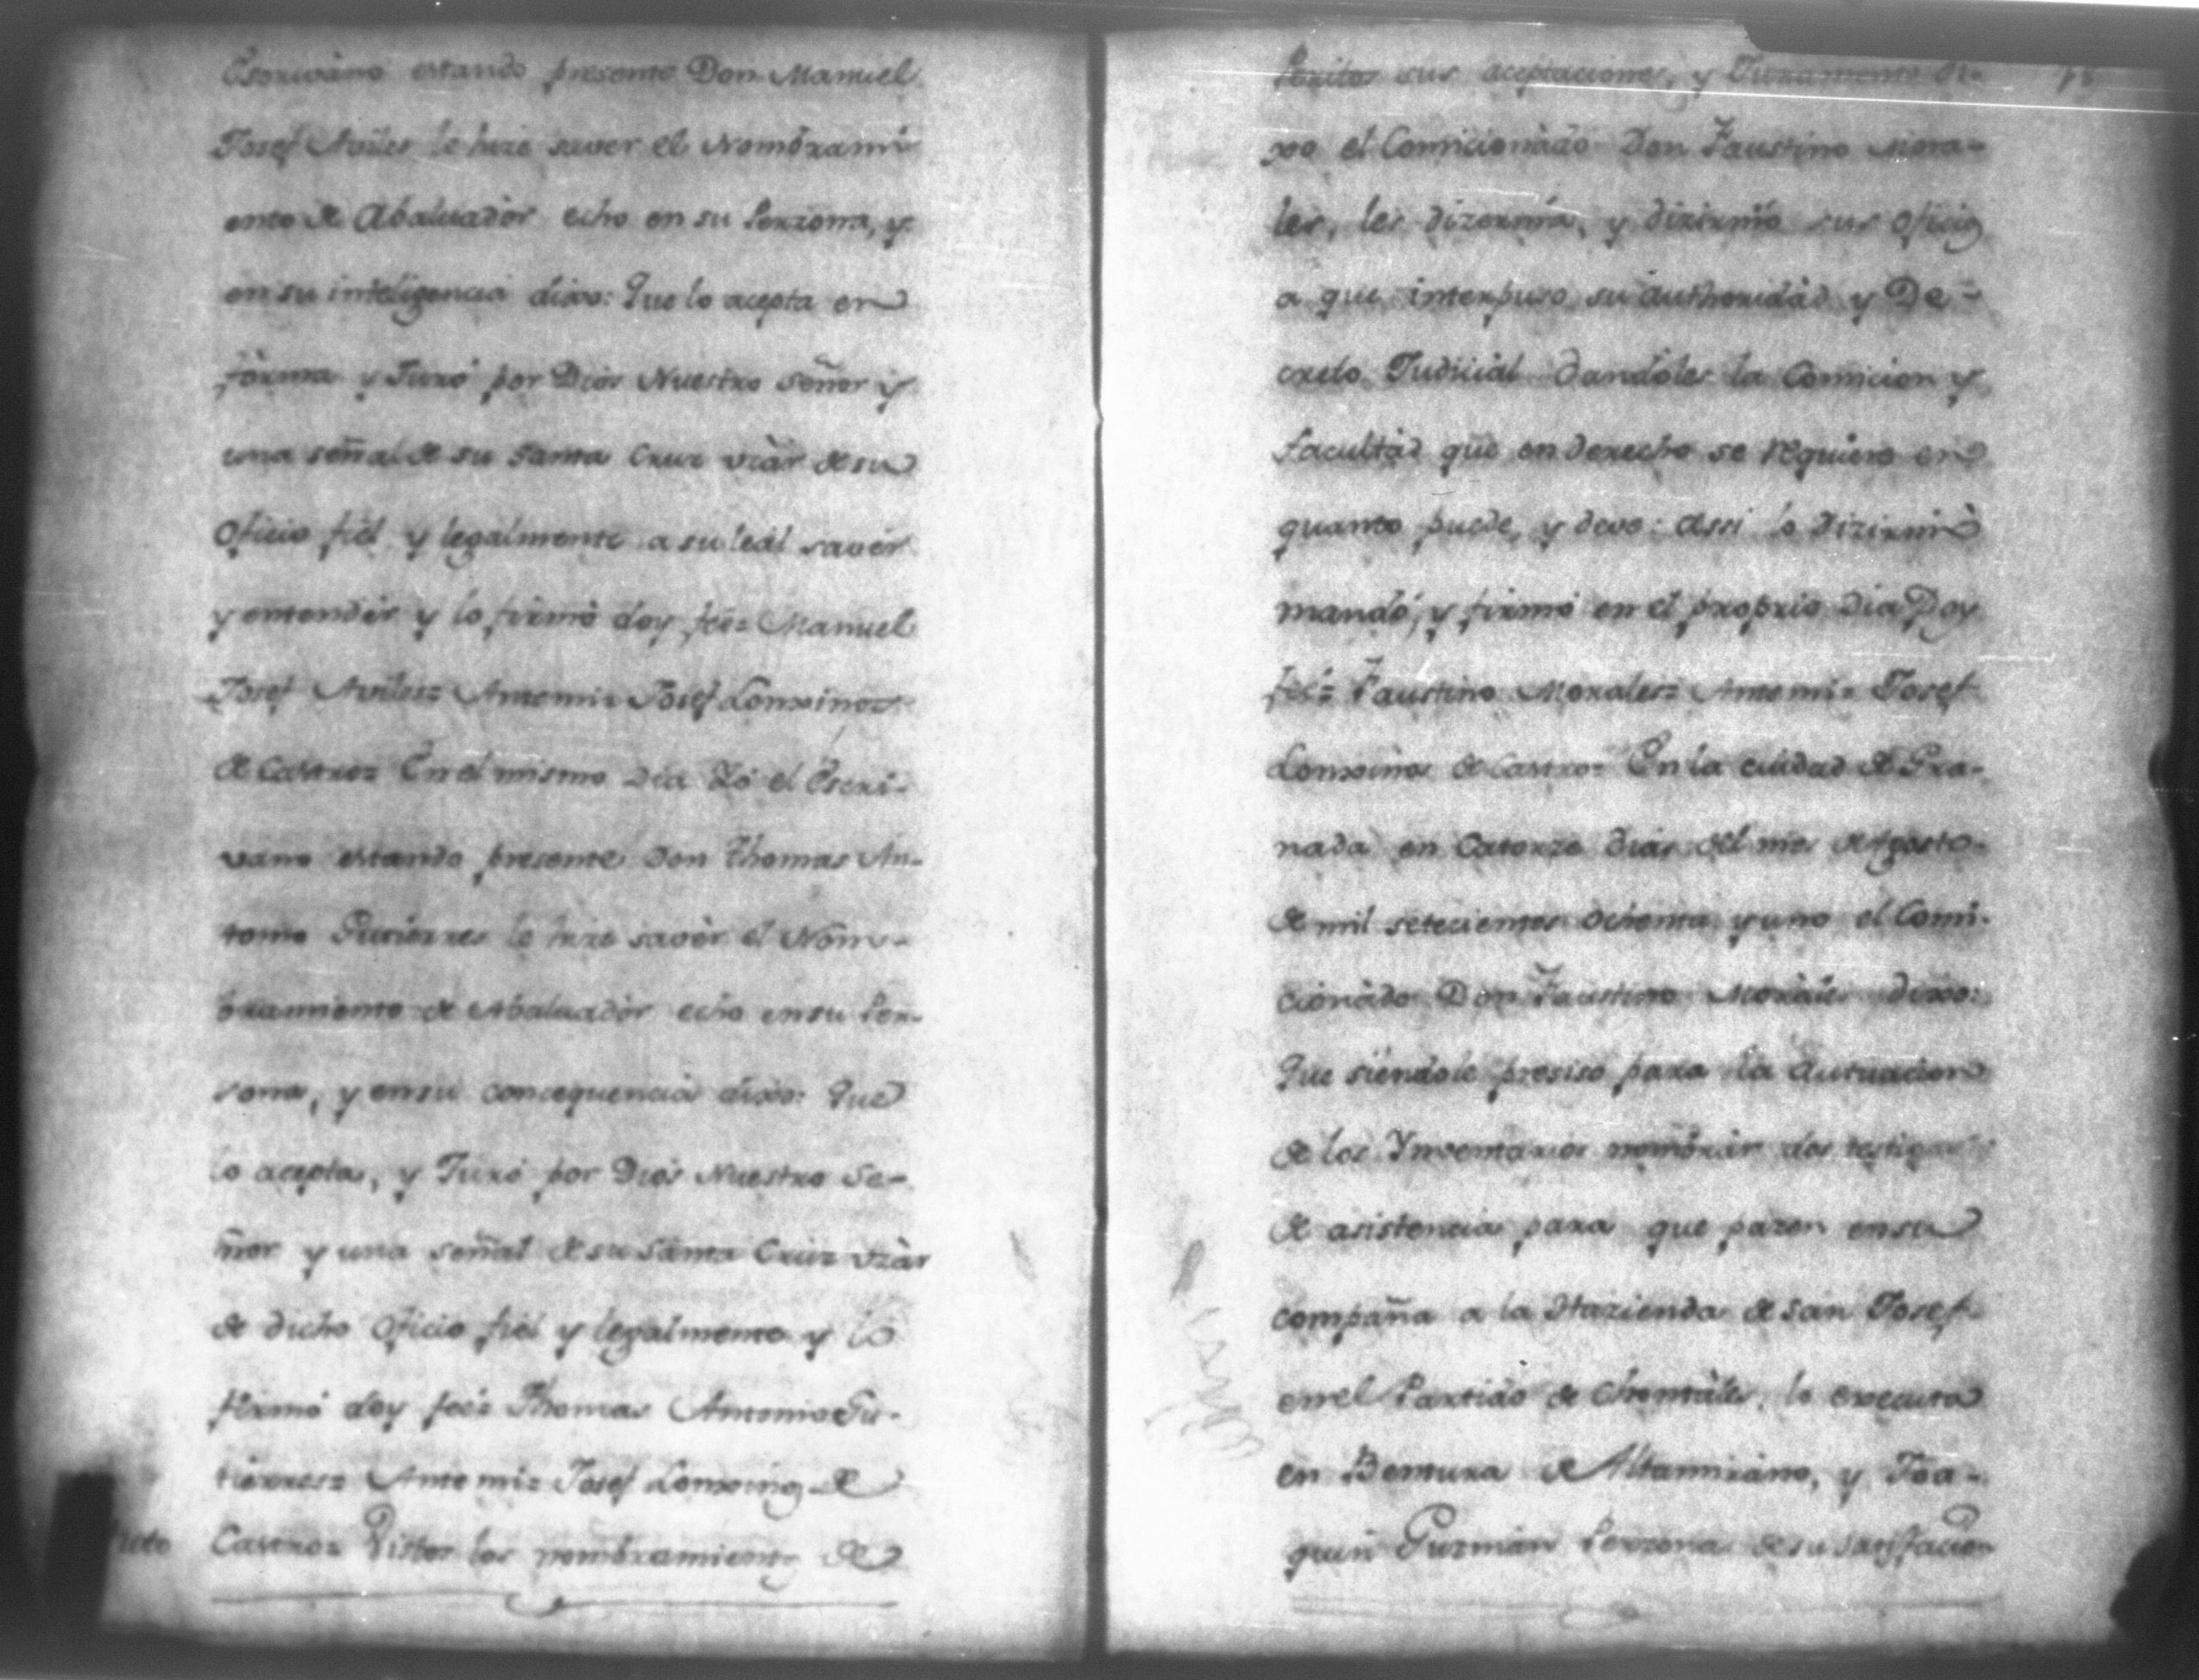 Escriváno estando presente Don Manuel
Josef Aviles le hize saver el Nombrami
ento de Abaluadór echo en su Perzona, y
en su inteligencia dixo: Que lo acepta en
fórma y Juró por Dios Nuestro Señor y
una señal de su Santa Cruz vzàr de su
Oficio fiel y legalmente a su leál savér
y entendér y lo firmó doy feé= Manuel
Josef Aviles= Antemi= Josef Lomoinos
de Castro= En el mismo Dia Yó el Escri-
vano estando presente Don Thomas An-
tonio Gutierres le hize savér el Nom-
bramiento de Abaluadór echo en su Per-
sona, y en su concequencia dixo: Que
lo acepta, y Juró por Dios Nuestro Se-
ñor y una señal de su Santa Cruz vzàr
de dicho Oficio fiel y legalmente y lo
firmó doy feé= Thomas Antonio Gu-
tierres= Antemi= Josef Lomoinos de
Castro= Vistos los nombramientos de
Peritos sus aceptaciones, y Juramento di-
xo el Comicionádo Don Faustino Mora-
les, les dizernia, y dizirnió sus oficios
a que interpuso su authoridád y De-
creto Judicial dandoles la Comicion y
facultád que en derecho se requiere en
quanto puede, y deve: Assi lo dizirnió
mandó, y firmó en el proprio dia Doy
feé= Faustino Morales= Antemi= Josef
Lomoinos de Castro= En la ciudad de Gra-
nada en Catorze dias del mes de Agosto
de mil setecientos ochenta y uno el Comi-
cionádo Don Faustino Moráles dixo:
Que siendole presiso para la Actuacion
de los Ynventarios nombrár dos testigos
de asistencia para que pazen en su
compaña a la Hazienda de San Josef
en el Partido de Chontáles, lo executa
en Bentura de Altamiráno, y Joa-
quin Guzmán Perzonas de su satisfacion